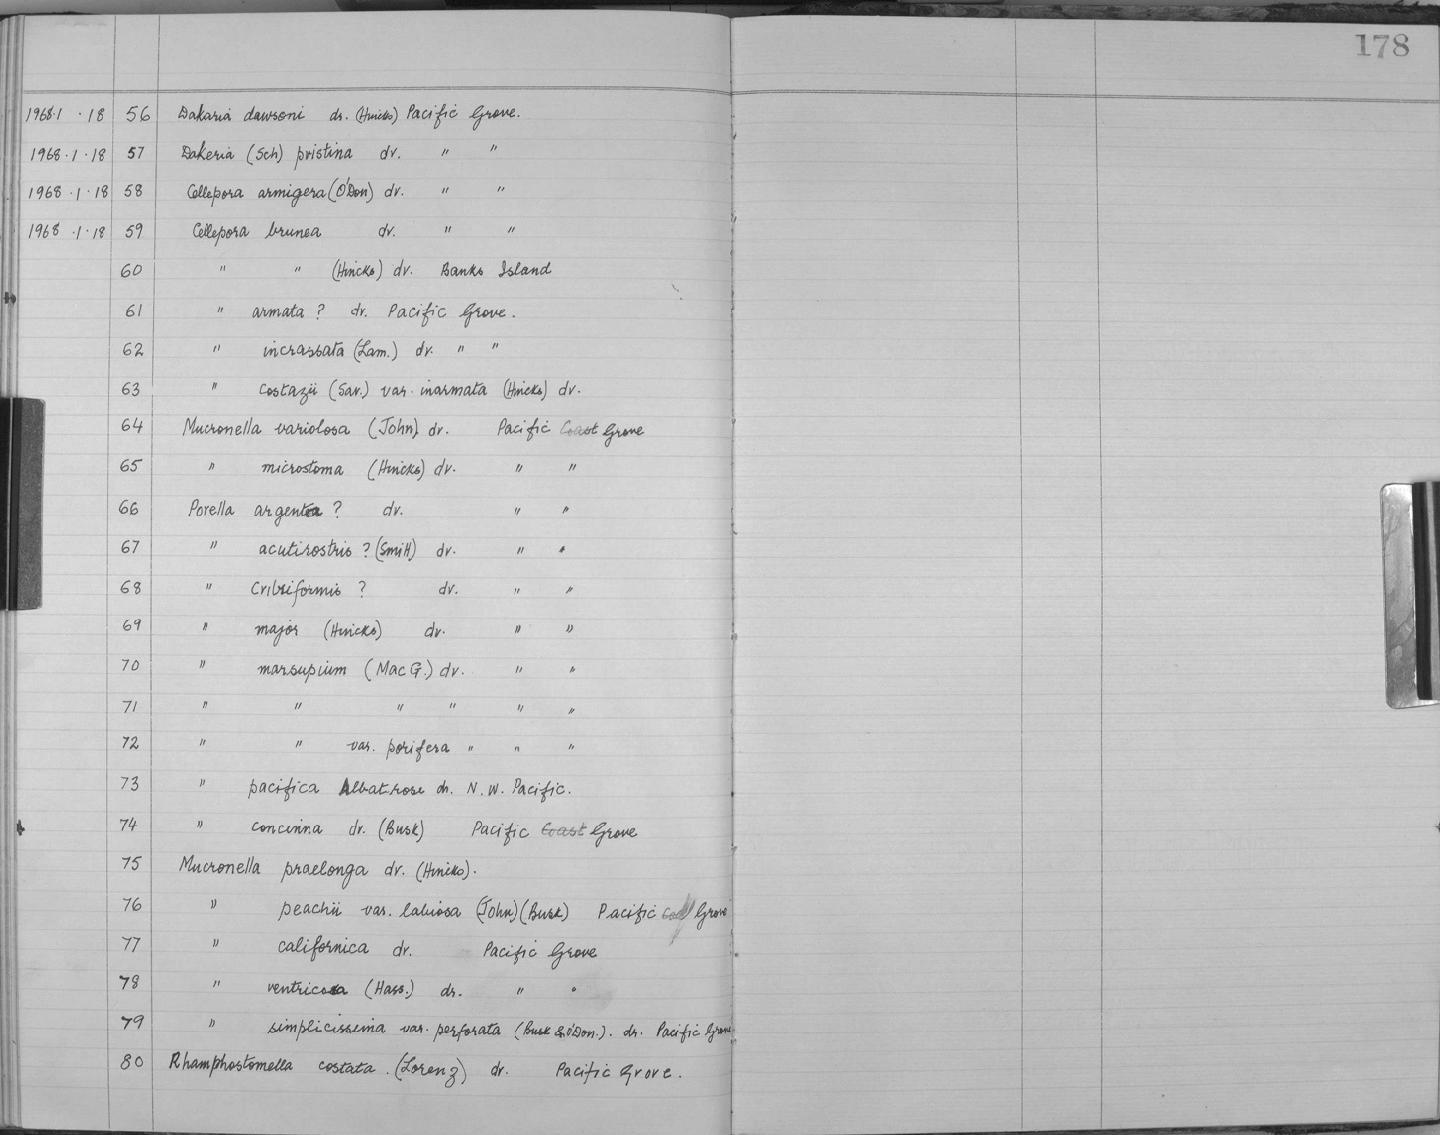 178
1968·1 · 18 56 Dakaria dawsoni dr. (Hincks) Pacific Grove.
1968 · 1 · 18 57 Dakeria (Sch) pristina dr. " "
1968 · 1 · 18 58 Cellepora armigera (O'Don) dr. " "
1968 · 1 · 18 59 Cellepora brunea dr. " "
60 " " (Hincks) dr. Banks Island
61 " armata ? dr. Pacific Grove.
62 " incrassata (Lam.) dr. " "
63 " costazii (Sav.) var. inarmata (Hincks) dr.
64 Mucronella variolosa (John) dr. Pacific Coast Grove
65 " microstoma (Hincks) dr. " "
66 Porella argentea ? dr. " "
67 " acutirostris ? (Smitt) dr. " "
68 " Cribriformis ? dr. " "
69 " major (Hincks) dr. " "
70 " marsupium (Mac G.) dr. " "
71 " " " " " "
72 " " var. porifera " " "
73 " pacifica Albatrose dr. N. W. Pacific.
74 " concinna dr. (Busk) Pacific Coast Grove
75 Mucronella praelonga dr. (Hincks).
76 " peachii var. labiosa (John) (Busk) Pacific Grove
77 " californica dr. Pacific Grove
78 " ventricosa (Hass.) dr. " "
79 " simplicissima var. perforata (Busk & O'Don.). dr. Pacific Grove
80 Rhamphostomella costata. (Lorenz) dr. Pacific Grove.